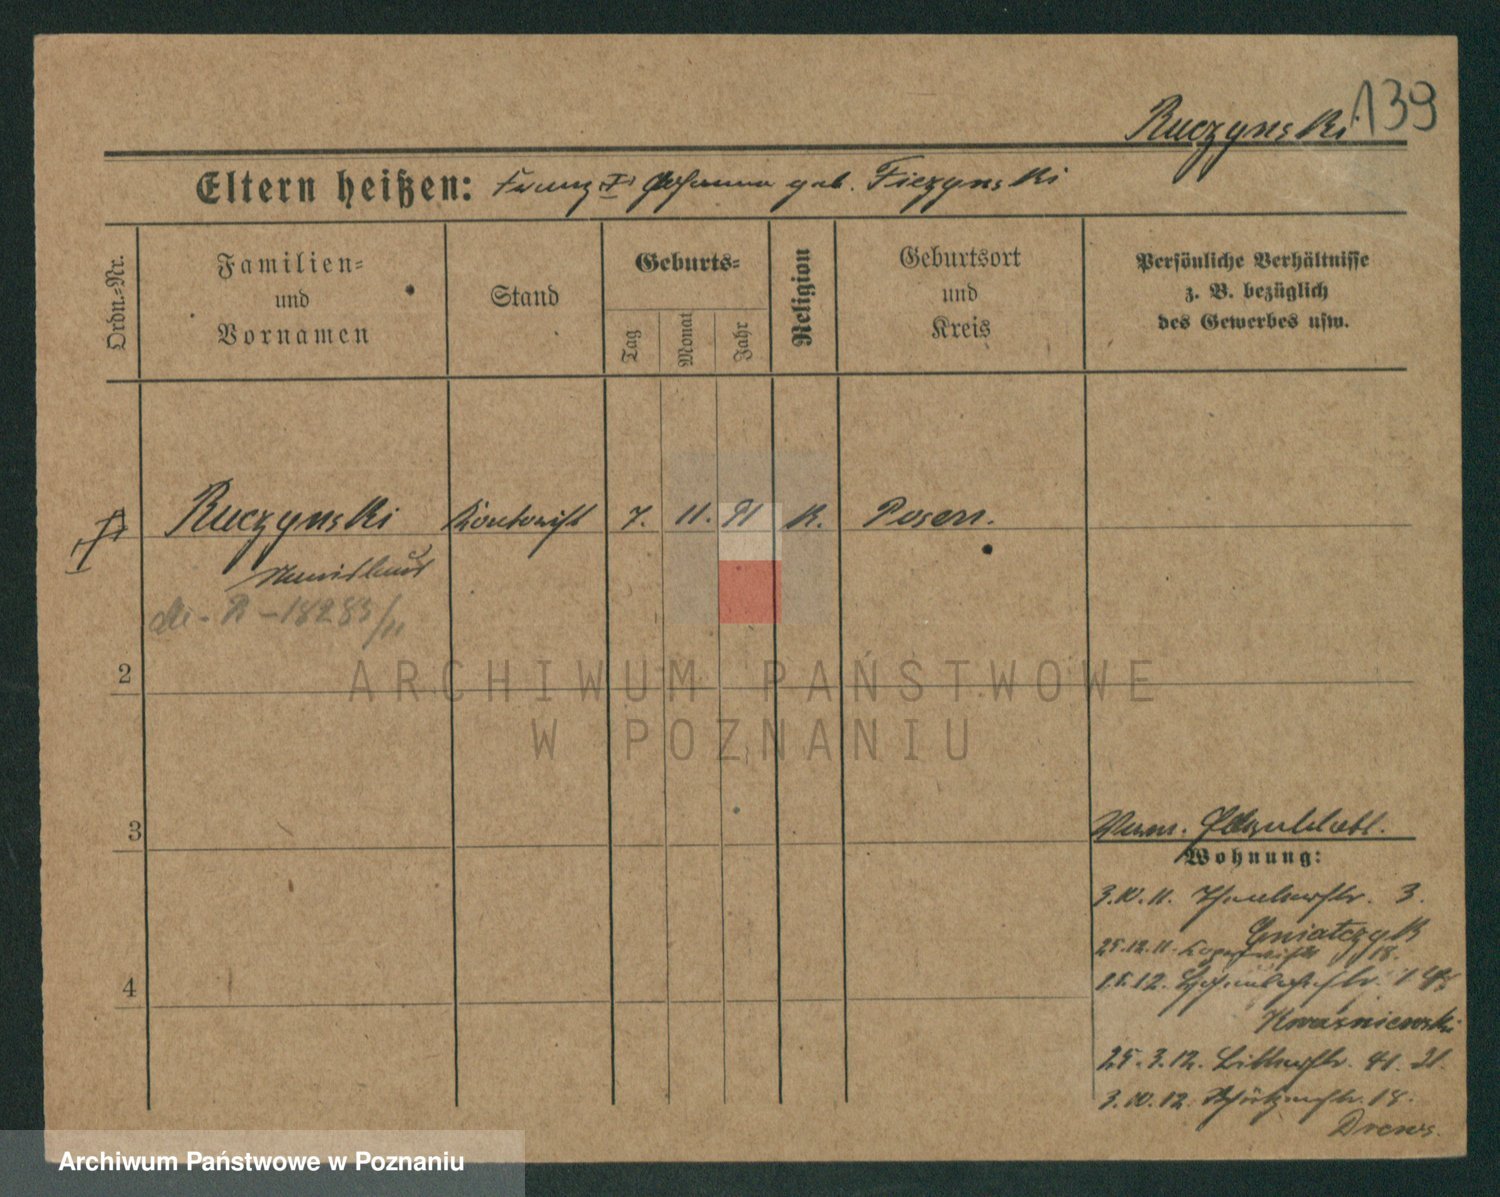 139
Ruczynski
Eltern heißen: Franz I Johanna geb. Ficzynski
Ordn.-Nr.
Familien-
und
Vornamen
Stand
Geburts-
Tag
Monat
Jahr
Religion
Geburtsort
und
Kreis
Persönliche Verhältnisse
z. B. bezüglich
des Gewerbes usw.
Ruczynski Kontorist 7. 11. 91 K. Posen.
Stanislaus
R-18283/11
2
3
4
Wohnung:
3.10.11. 3.
Gniatczyk
25.12.11. 18.
Kwasniewski
25.3.12.
3.10.12. Schützenstr. 18.
Drews.
ARCHIWUM PAŃSTWOWE
W POZNANIU
Archiwum Państwowe w Poznaniu